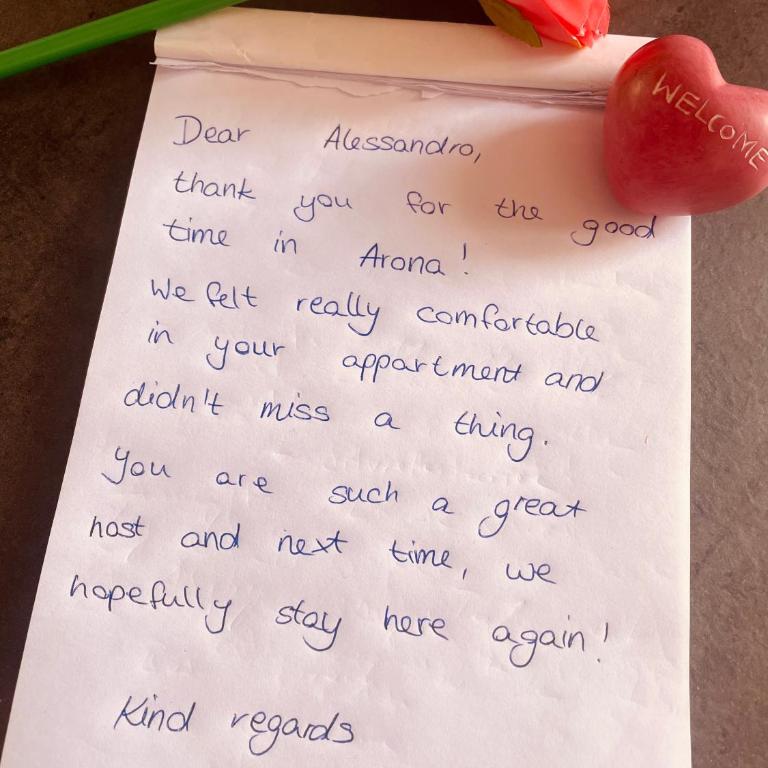 WELCOME
Dear Alessandro,
thank you for the good
time in Arona!
We felt really comfortable
in your appartment and
didn't miss a thing.
You are such a great
host and next time, we
hopefully stay here again!
Kind regards